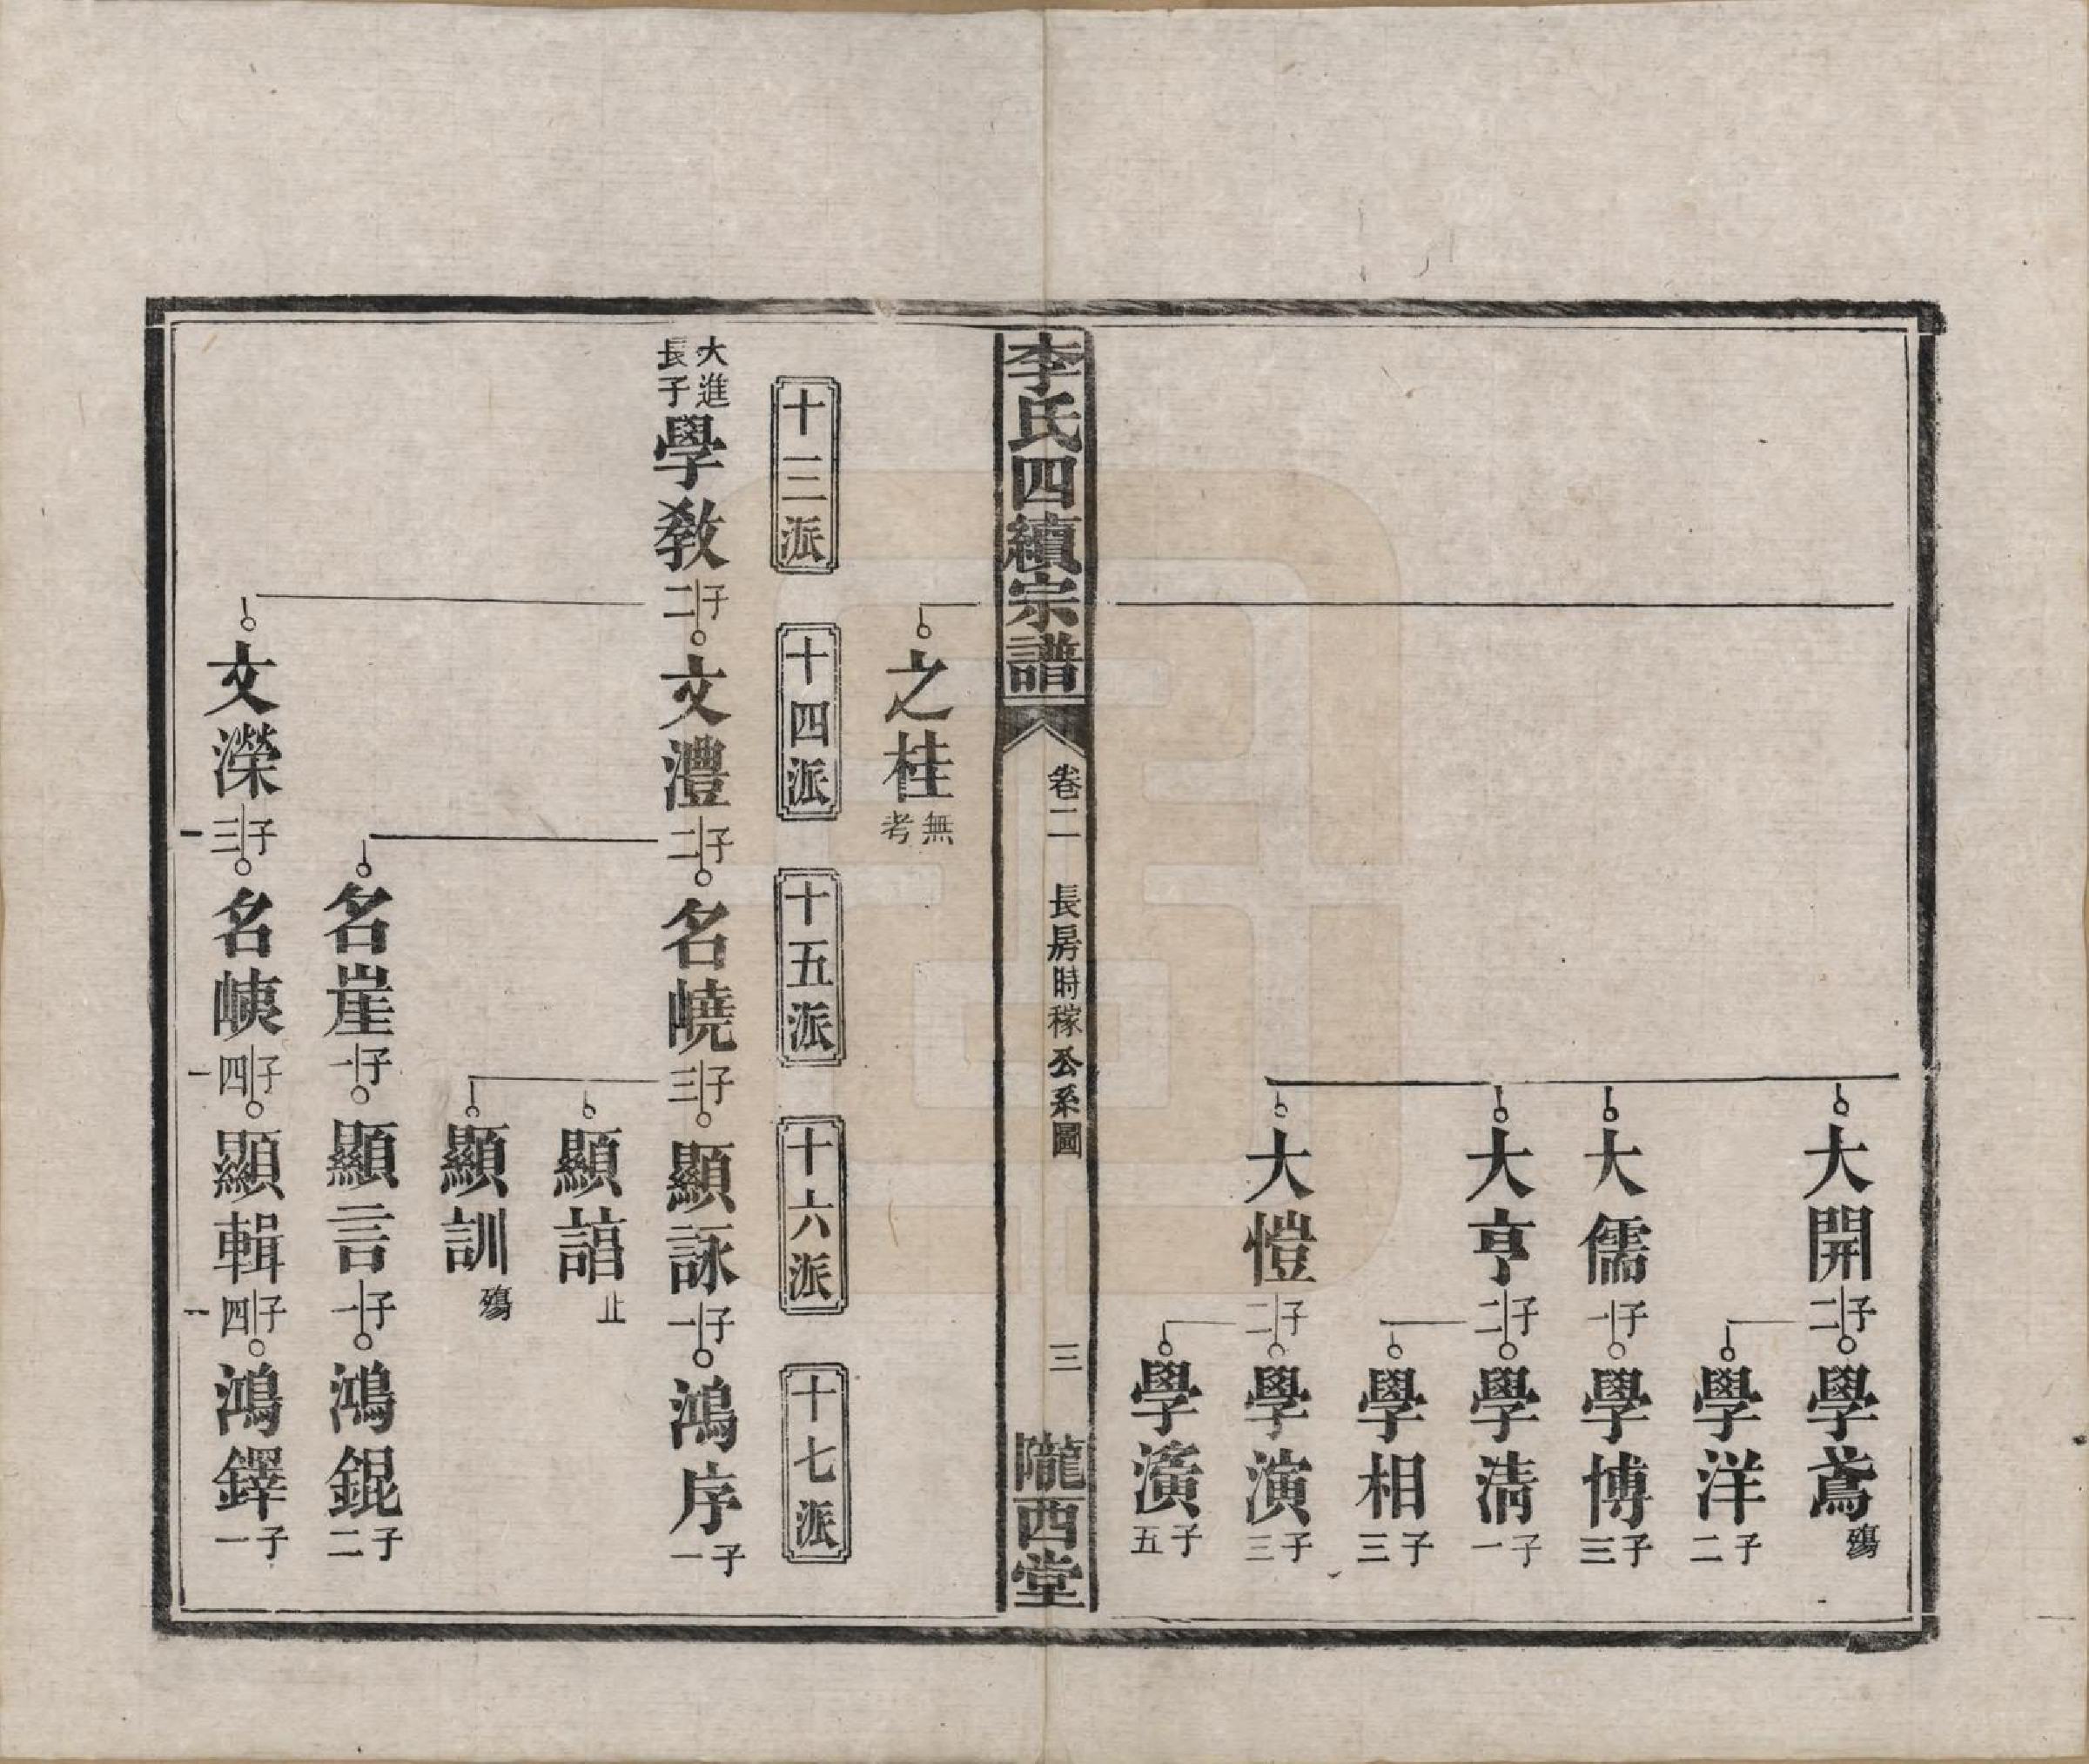 大開子二學鳶殤
學洋子二
大儒子一學博子三
大亨子二學清子一
學相子三
大愷子二學演子三
學濱子五
李氏四續宗譜
卷二
長房時稼公系圖
三
隴西堂
之桂無考
十三派
十四派
十五派
十六派
十七派
大進長子學敎子二文澧子二名嶢子三顯詠子一鴻序子一
顯諳止
顯訓殤
名崖子一顯言子一鴻錕子二
文濚子三名峓子四顯輯子四鴻鐸子一